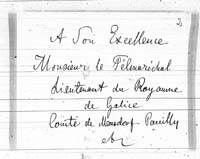 A Son Excellence
Monsieur le Félmaréchal
Lieutenant du Royaume
de Galice
Comte de Mensdorf Pouilly
etc